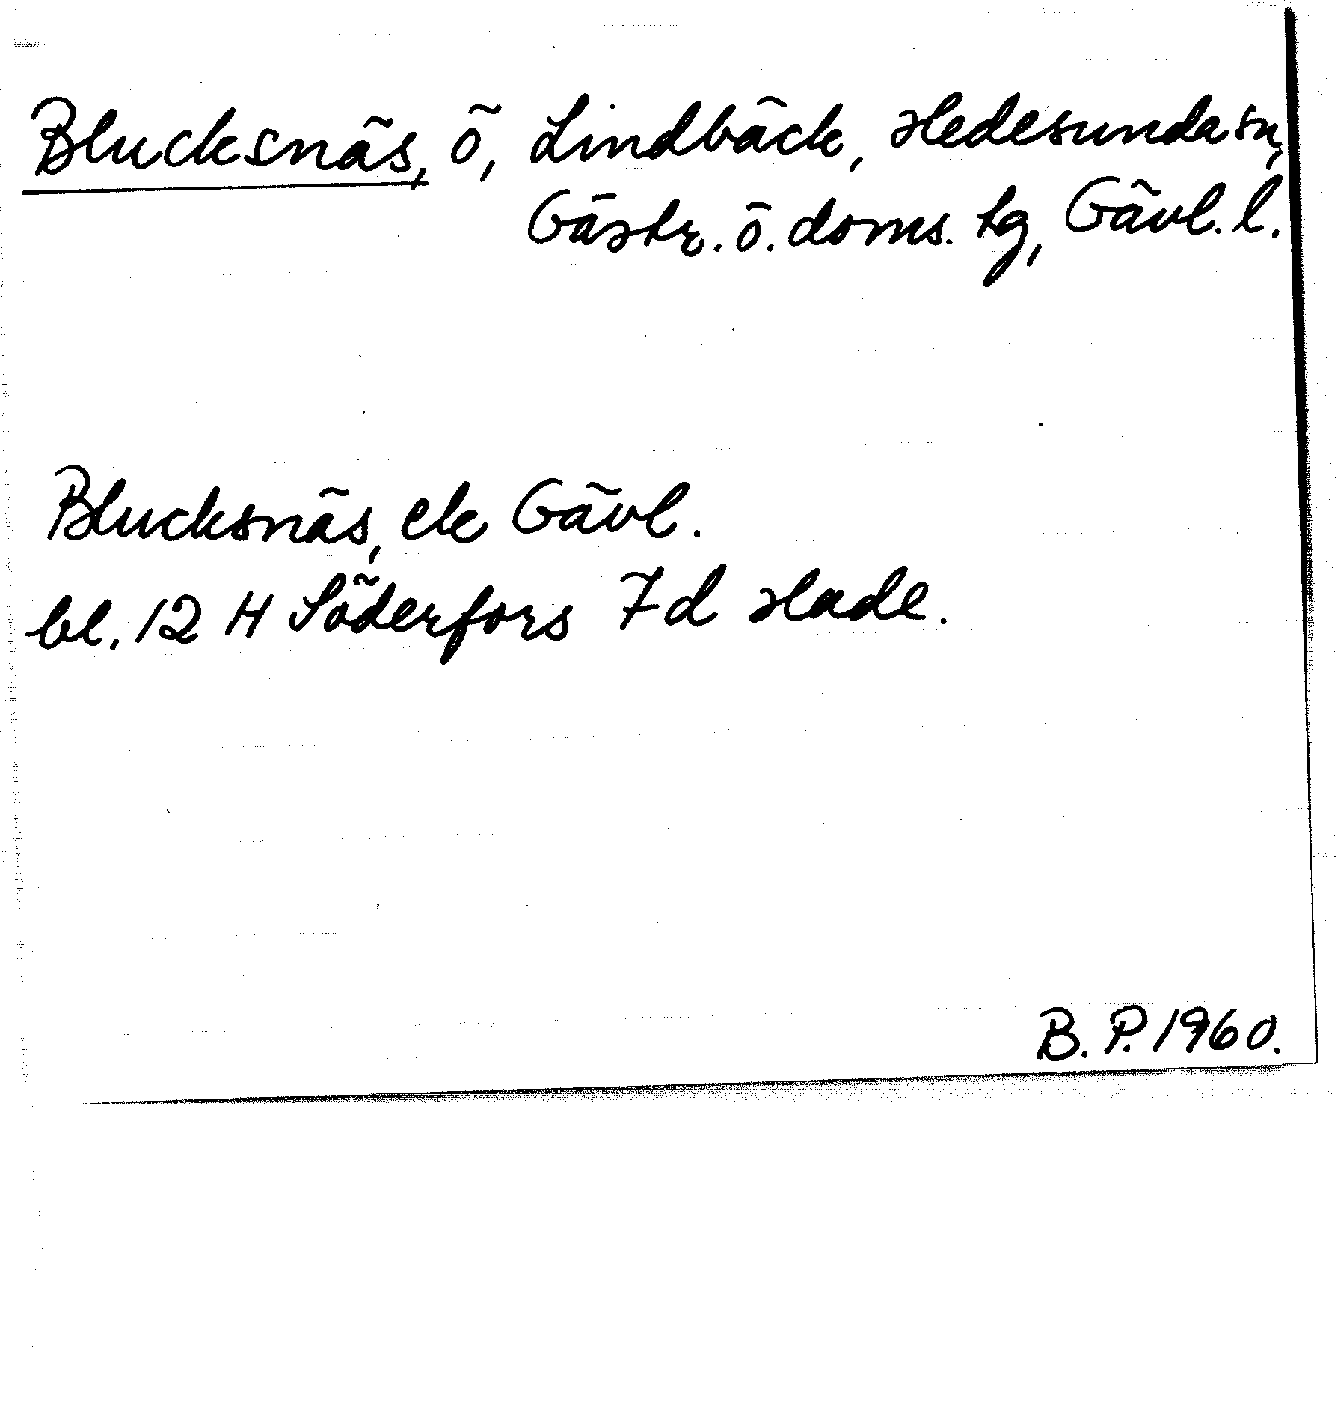 Blucksnäs, ö, Lindbäck, Hedesunda sn,
Gästr. ö. doms. tg, Gävl. l.
Blucksnäs, ek Gävl.
bl. 12 H Söderfors 7d Hade.
B. P. 1960.